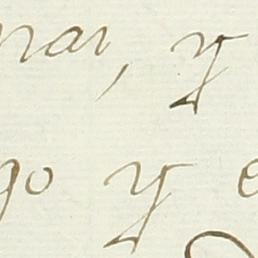 nar, y
go y e